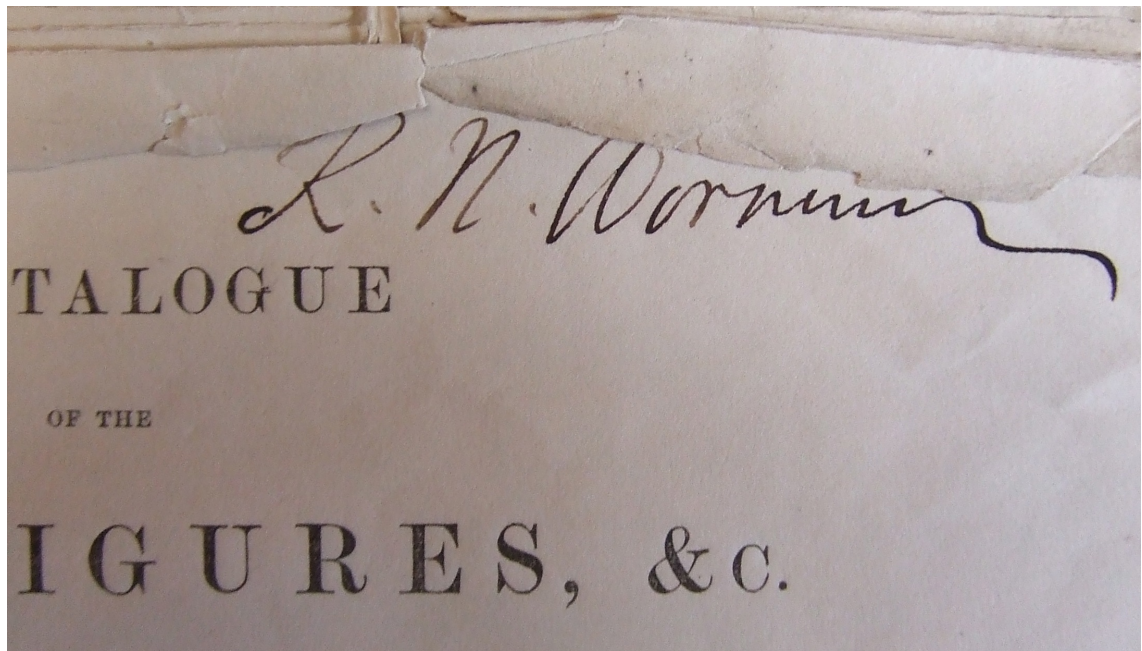 R. N. Wornum
TALOGUE
OF THE
IGURES, &C.